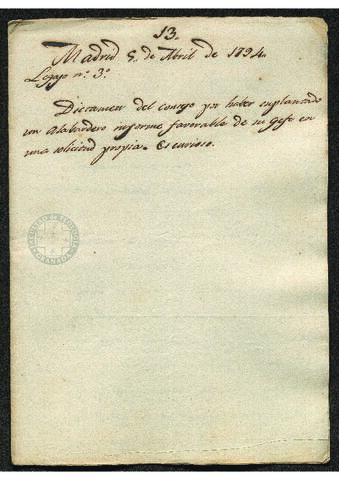 13.
Madrid 5 de Abril de 1794.
Legajo n.º 3.º
Dictamen del consejo por haber suplantado
un Alabardero informe favorable de su Gefe en
una solicitud propia. Es curioso.
FACULTAD DE TEOLOGIA
GRANADA